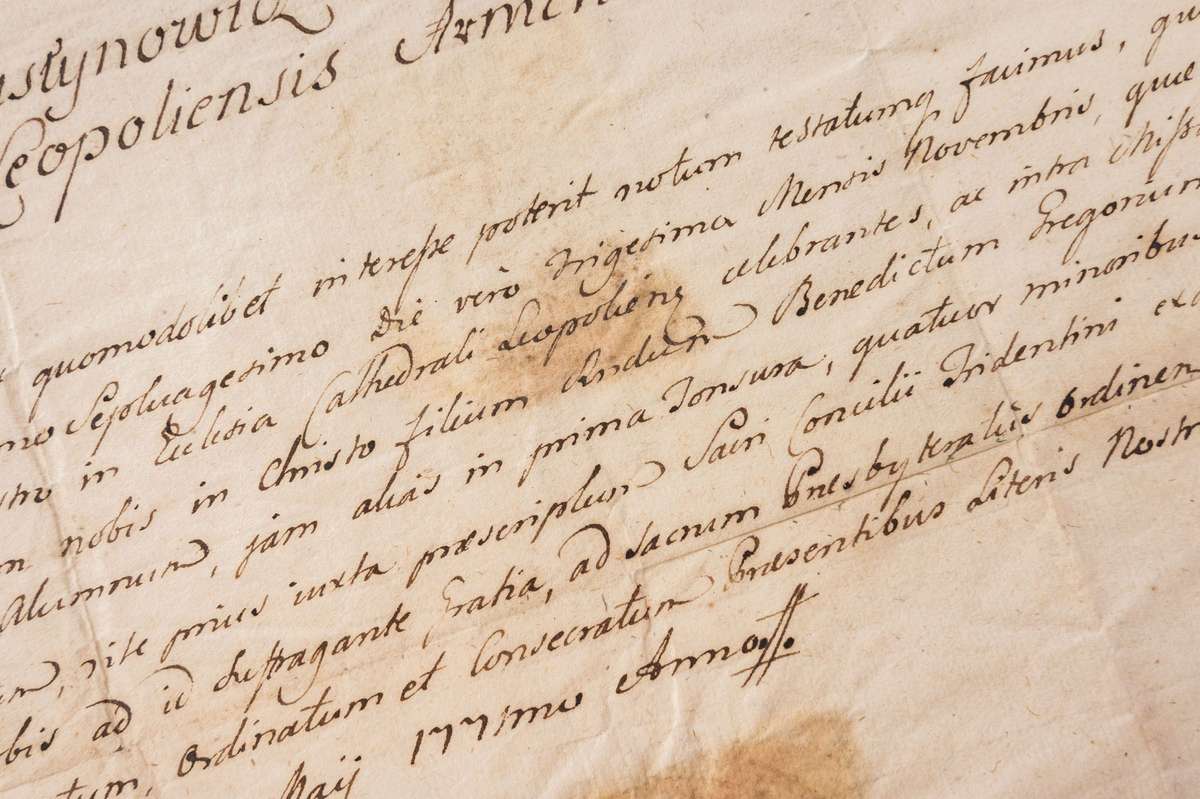 ustynowicz
Leopoliensis Armen
quomodolibet interesse poterit notum testatumq facimus, qu
mo Septuagesimo Die vero Trigesima Mensis Novembris, quæ
stro in Ecclesia Cathedrali Leopoliens celebrantes, ac intra Missa
m nobis in Christo filium Andum Benedictum Gregorium
Alumnum, jam alias in prima Tonsura, quatuor minoribus
um, rite prius iuxta præscriptum Sacri Concilii Tridentini exa
obis ad id suffragante Gratia, ad sacrum Presbyteratus ordinem
tum, ordinatum et Consecratum Præsentibus Literis Nostr
Maij 1771mo Anno